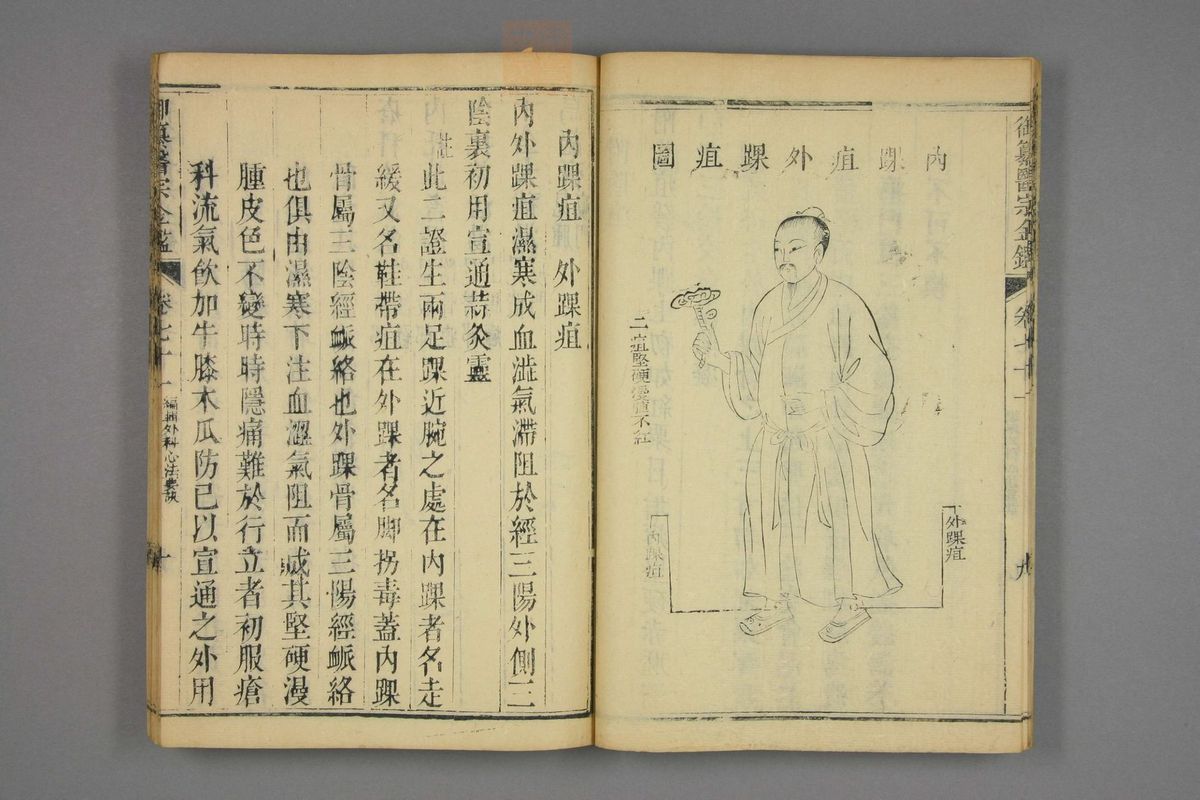 御纂醫宗金鑑
卷七十一
九
內踝疽外踝疽圖
外踝疽
內踝疽
二疽堅硬漫腫不紅
內踝疽 外踝疽
內外踝疽濕寒成血澁氣滯阻於經三陽外側三
陰裏初用宣通蒜灸靈
註
此二證生兩足踝近腕之處在內踝者名走
緩又名鞋帶疽在外踝者名脚拐毒蓋內踝
骨屬三陰經脈絡也外踝骨屬三陽經脈絡
也俱由濕寒下注血澀氣阻而成其堅硬漫
腫皮色不變時時隱痛難於行立者初服瘡
科流氣飲加牛膝木瓜防已以宣通之外用
御纂醫宗金鑑
卷七十一
編輯外科心法要訣
十